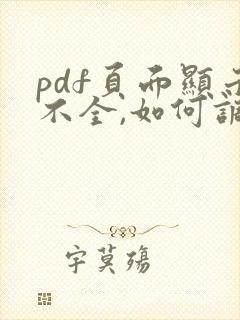 pdf頁而顯示
不全,如何調
字莫殤